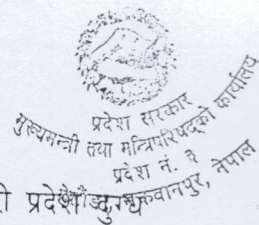 प्रदेश सरकार
मुख्यमन्त्री तथा मन्त्रिपरिषद्को कार्यालय
प्रदेश नं. ३
मकवानपुर, नेपाल
री प्रदेश दुग्ध